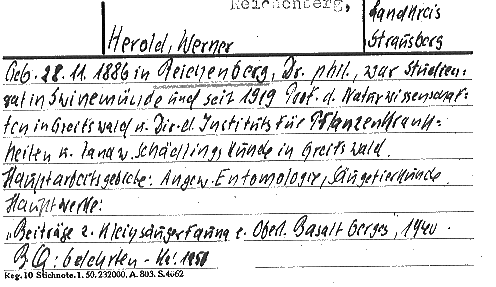 Reichenberg,
Landkreis
Strausberg
Herold, Werner
Geb. 28. 11. 1886 in Reichenberg, Dr. phil., war Studien-
rat in Swinemünde und seit 1919 Prof. d. Naturwissenschaf-
ten in Greifswald u. Dir. d. Instituts für Pflanzenkrank-
heiten u. landw. Schädlingskunde in Greifswald.
Hauptarbeitsgebiete: Angew. Entomologie, Säugetierkunde.
Hauptwerke:
"Beiträge z. Kleinsäugerfauna e. Oberl. Basaltberges", 1940.
BQ: Gelehrten-Kal. 1950
Keg. 10 Stichnote. 1. 50. 232000. A. 803. S. 4662